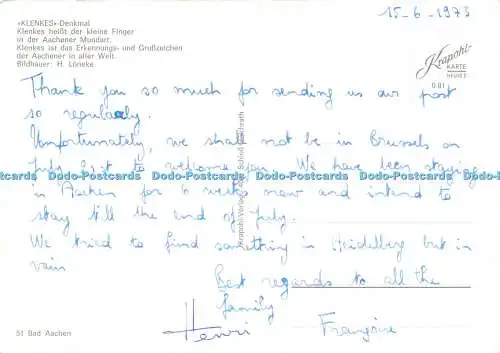 15-6-1973
«KLENKES»-Denkmal
Klenkes heißt der kleine Finger
in der Aachener Mundart.
Klenkes ist das Erkennungs- und Grußzeichen
der Aachener in aller Welt.
Bildhauer: H. Löneke.
Krapohl-
KARTE
Thank you so much for sending us our post
so regularly.
Unfortunately, we shall not be in Brussels on
July to welcome you. We have been staying
Dodo-Postcards Dodo-Postcards Dodo-Postcards Dodo-Postcards Dodo-Postcards
in Aachen for 6 weeks now and intend to
stay till the end of July.
We tried to find something in Heidelberg but in
vain
Best regards to all the
family
Henri Françoise
Krapohl-Verlag
51 Bad Aachen